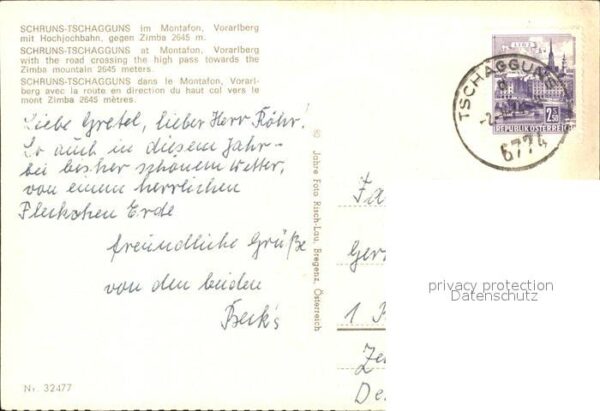 SCHRUNS-TSCHAGGUNS im Montafon, Vorarlberg
mit Hochjochbahn, gegen Zimba 2645 m.
SCHRUNS-TSCHAGGUNS at Montafon, Vorarlberg
with the road crossing the high pass towards the
Zimba mountain 2645 meters.
SCHRUNS-TSCHAGGUNS dans le Montafon, Vorarl-
berg avec la route en direction du haut col vers le
mont Zimba 2645 mètres.
Liebe Gretel, lieber Herr Röhr!
So auch in diesem Jahr -
bei bisher schönem Wetter,
von einem herrlichen
Fleckchen Erde
freundliche Grüße
von den beiden
Beck's
Nr. 32477
Jahre Foto Risch-Lau, Bregenz, Österreich
LINZ
2.50
REPUBLIK ÖSTERREICH
TSCHAGGUNS
6774
Fa
Ger
1
Ze
De
privacy protection
Datenschutz